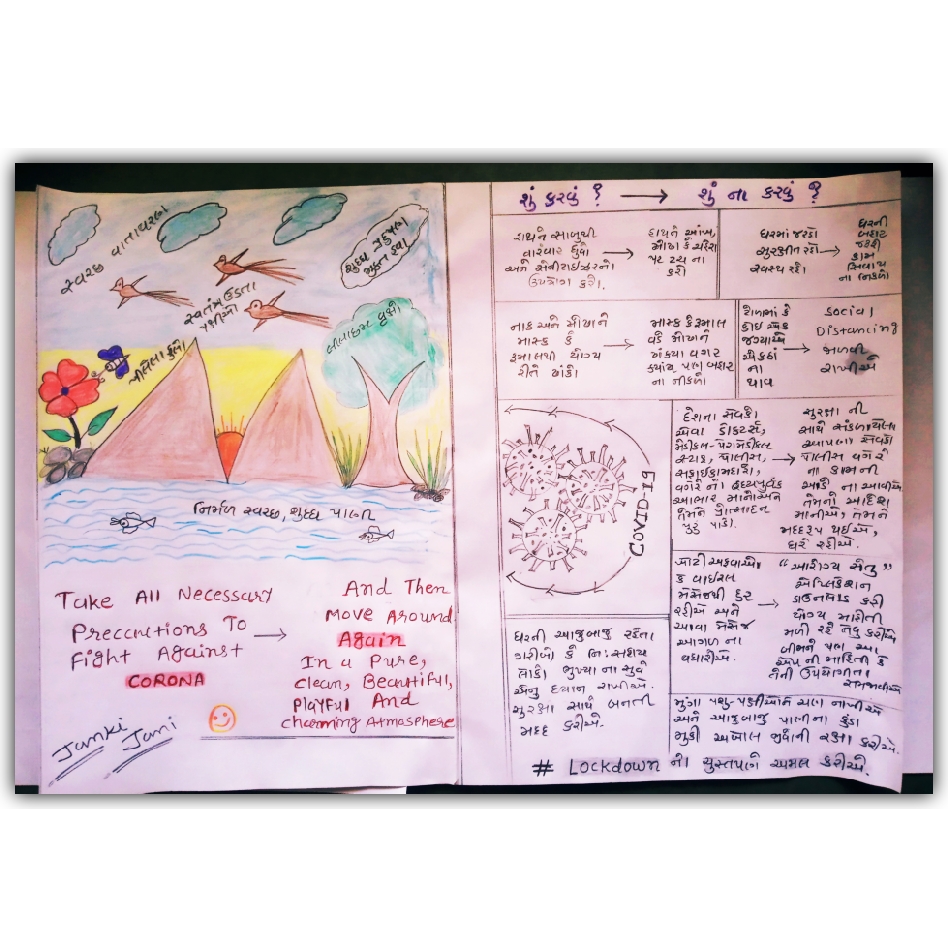 સ્વચ્છ વાતાવરણ
શુધ્ધ પ્રદુષણ
મુક્ત હવા
સ્વતંત્ર ઉડતા
પક્ષીઓ
ખીલેલા ફુલો
લીલાછમ વૃક્ષો
નિર્મળ સ્વચ્છ, શુધ્ધ પાણી
Take All Necessary
Precautions To
Fight Against
CORONA
→
And Then
Move Around
Again
In a Pure,
Clean, Beautiful,
Playful And
charming Atmasphere
Janki
Jani
શું કરવું ? → શું ના કરવું ?
હાથને સાબુથી
વારંવાર ધુવો
અને સેનીટાઈઝરનો
ઉપયોગ કરો.
→
હાથને આંખ,
મોઢા કે ચહેરા
પર ટચ ના
કરો
ઘરમાં જ રહો
સુરક્ષીત રહો
સ્વસ્થ રહો.
→
ઘરની
બહાર
જરૂરી
કામ
સિવાય
ના નિકળો
નાક અને મોઢાને
માસ્ક કે
રૂમાલથી યોગ્ય
રીતે ઢાંકો.
→
માસ્ક કે રૂમાલ
વડે મોઢાને
ઢાંકયા વગર
કયાંય પણ બહાર
ના નીકળો
ટોળામાં કે
કોઇ એક
જગ્યાએ
એકઠાં
ના
થાવ
→
Social
Distancing
જાળવી
રાખીએ
COVID-19
દેશના સેવકો
એવા ડોકટર્સ,
મેડીકલ-પેરામેડીકલ
સ્ટાફ, પોલીસ,
સફાઈકામદારો,
વગેરેનો હ્રદયપુર્વક
આભાર માનીએ અને
તેમને પ્રોત્સાહન
પુરું પાડો.
→
સુરક્ષા ની
સાથે સંકળાયેલા
આપણા સેવકો
પોલીસ વગેરે
ના કામની
આડે ના આવીએ
તેમનો આદેશ
માનીએ, તેમને
મદદરૂપ થઈએ,
ઘરે રહીએ.
ખોટી અફવાઓ
કે વાઈરલ
મેસેજથી દુર
રહીએ અને
આવા મેસેજ
આગળ ના
વધારીએ.
→
“આરોગ્ય સેતુ”
એપ્લિકેશન
ડાઉનલોડ કરી
યોગ્ય માહિતી
મળી રહે તેવું કરીએ
બીજાને પણ આ
એપ ની માહિતી કે
તેની ઉપયોગીતા
સમજાવીએ
ઘરની આજુબાજુ રહેતા
ગરીબો કે નિઃસહાય
લોકો ભુખ્યા ના સુવે
એનું ધ્યાન રાખીએ.
સુરક્ષા સાથે બનતી
મદદ કરીએ.
મુંગા પશુ-પક્ષીઓને ચણ નાખીએ
અને આજુબાજુ પાણીના કુંડા
મુકી અબોલ જીવોની રક્ષા કરીએ.
# Lockdown નો ચુસ્તપણે અમલ કરીએ.